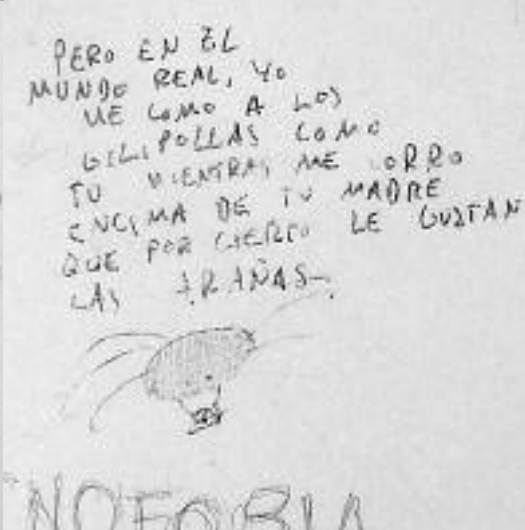 PERO EN EL
MUNDO REAL, YO
ME COMO A LOS
GILIPOLLAS COMO
TU MIENTRAS ME CORRO
ENCIMA DE TU MADRE
QUE POR CIERTO LE GUSTAN
LAS ARAÑAS
NOFOBIA